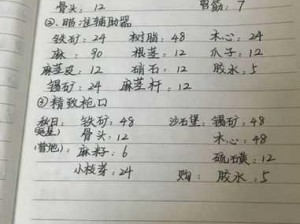 骨头：12 兽筋：7
③.瞄准辅助器
铁矿：24 树脂：48 木心：24
麻：90 根茎：12 爪子：12
麻茎皮：12 硝石：12 胶水：5
锡矿：24 麻茎杆：12
④精致枪口
秋日：铁矿：48 沙石堡：锡矿：48
骨头：12 木心：48
(营地) 麻籽：6 硫磺：12
小枝芽：24 购：胶水：5